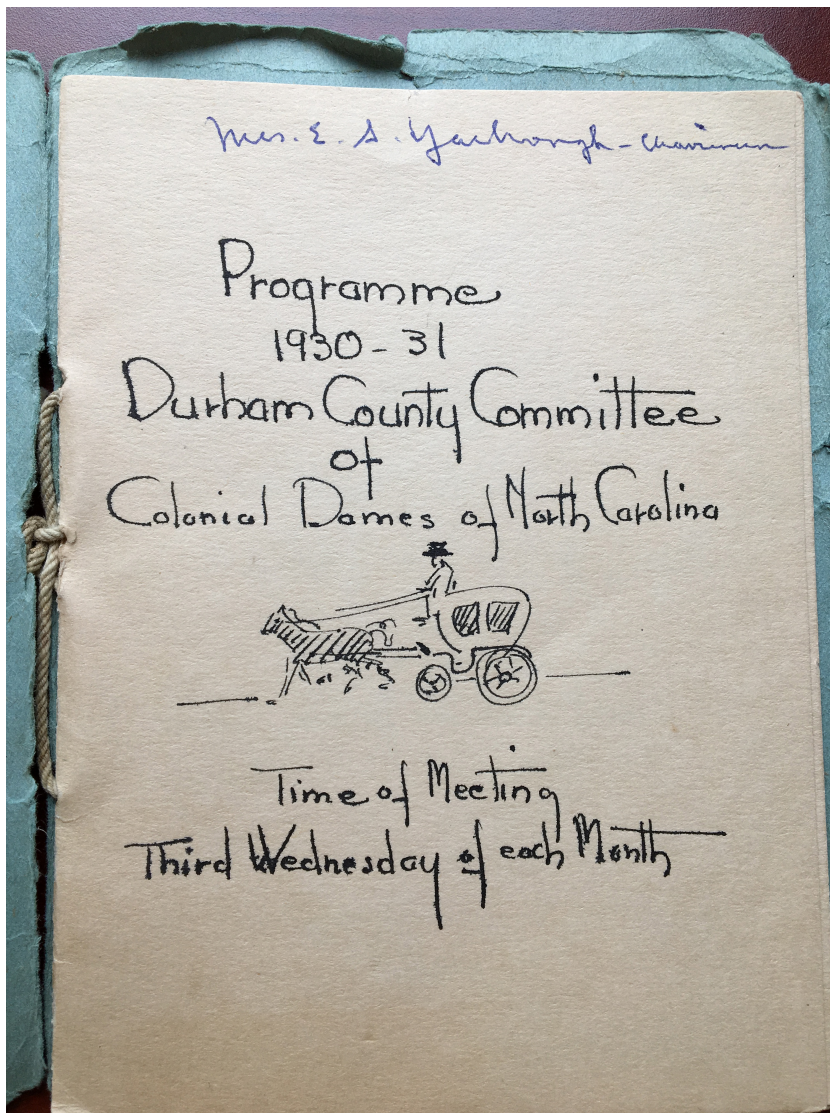 Mrs. E. S. Yarbrough - Chairman
Programme
1930-31
Durham County Committee
of
Colonial Dames of North Carolina
Time of Meeting
Third Wednesday of each Month